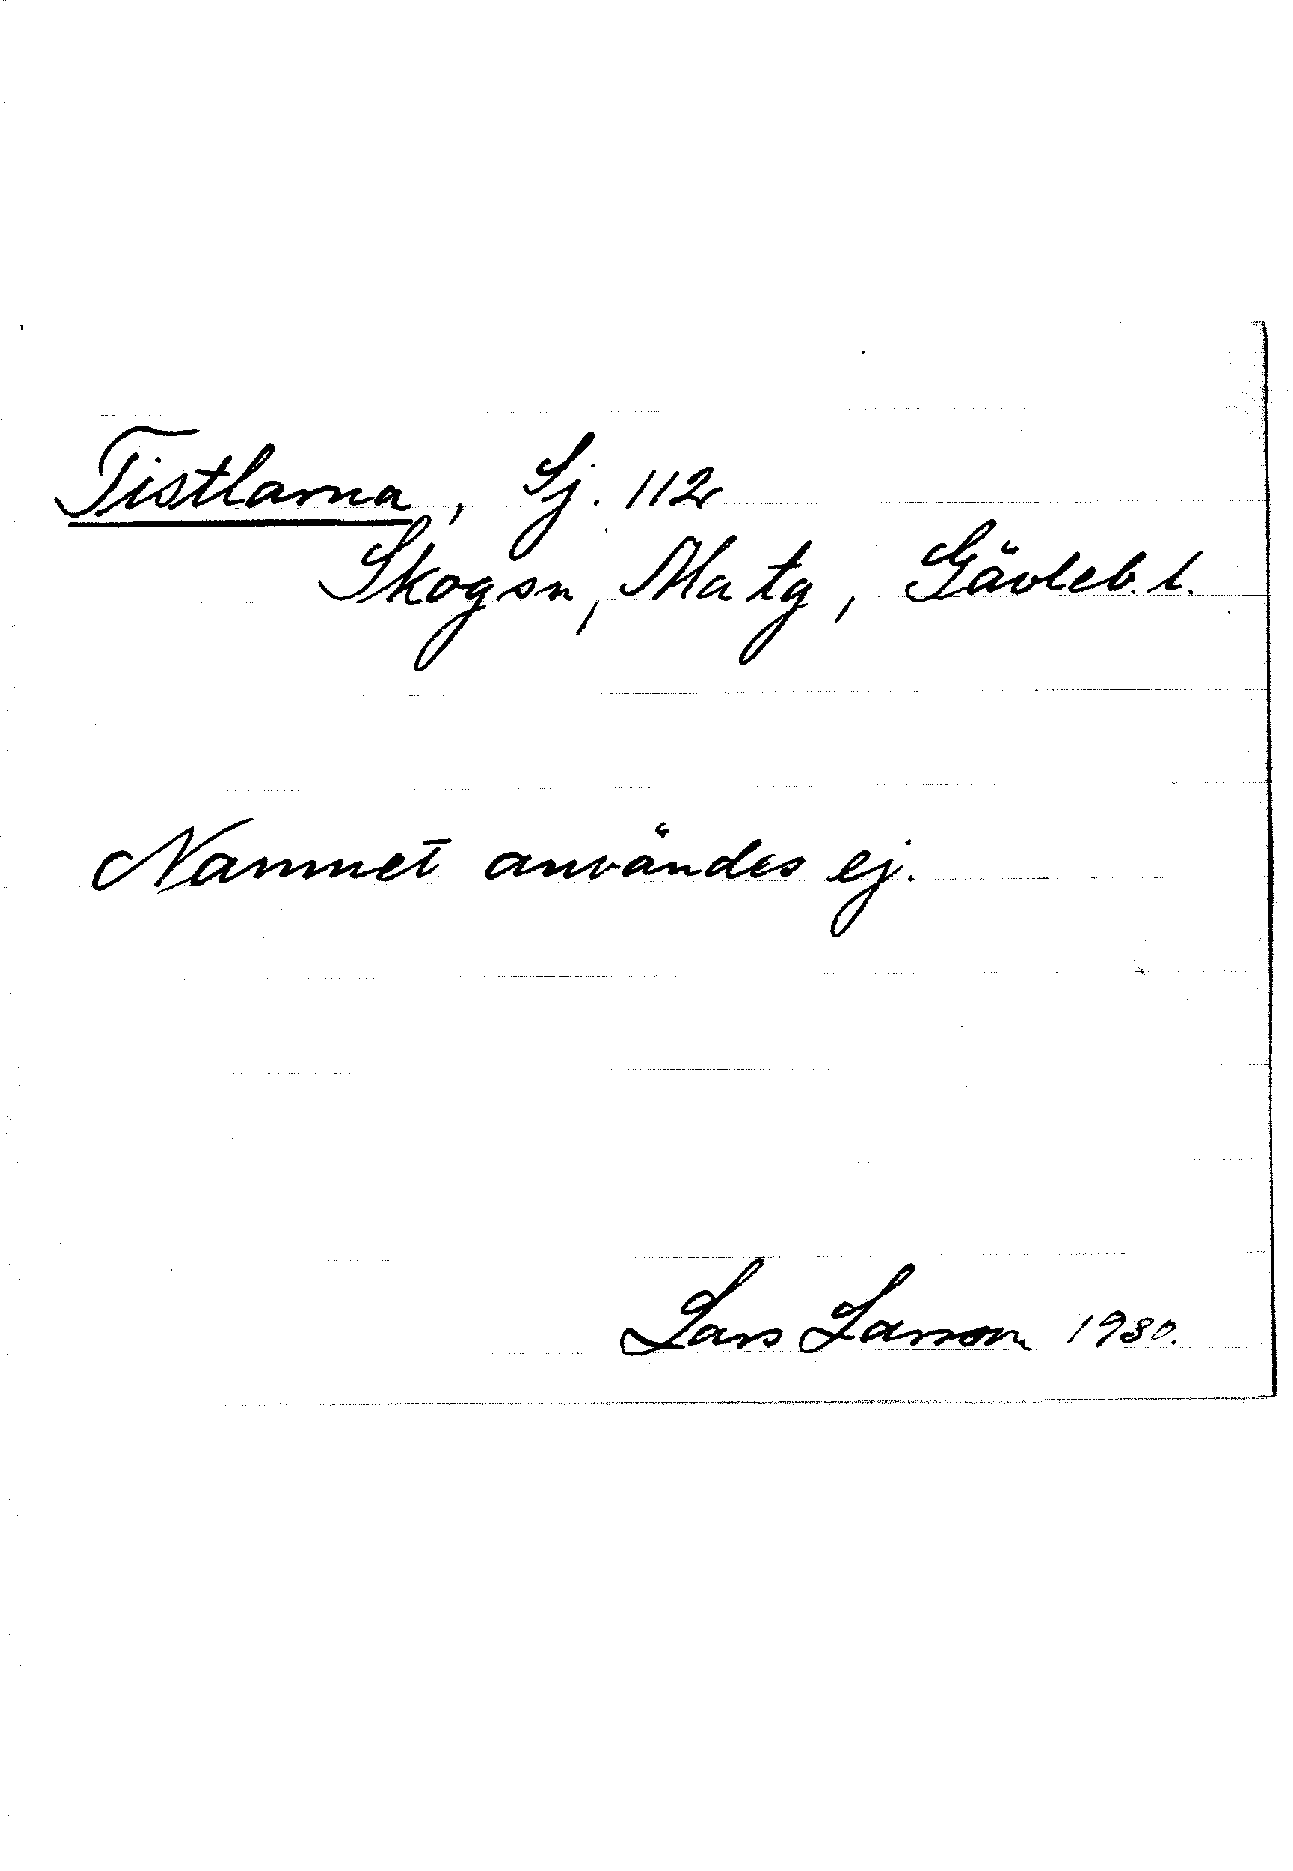 Tistlarna, Sj. 112
Skogsn, Ma tg, Gävleb. l.
Namnet användes ej.
Lars Larsson 1930.